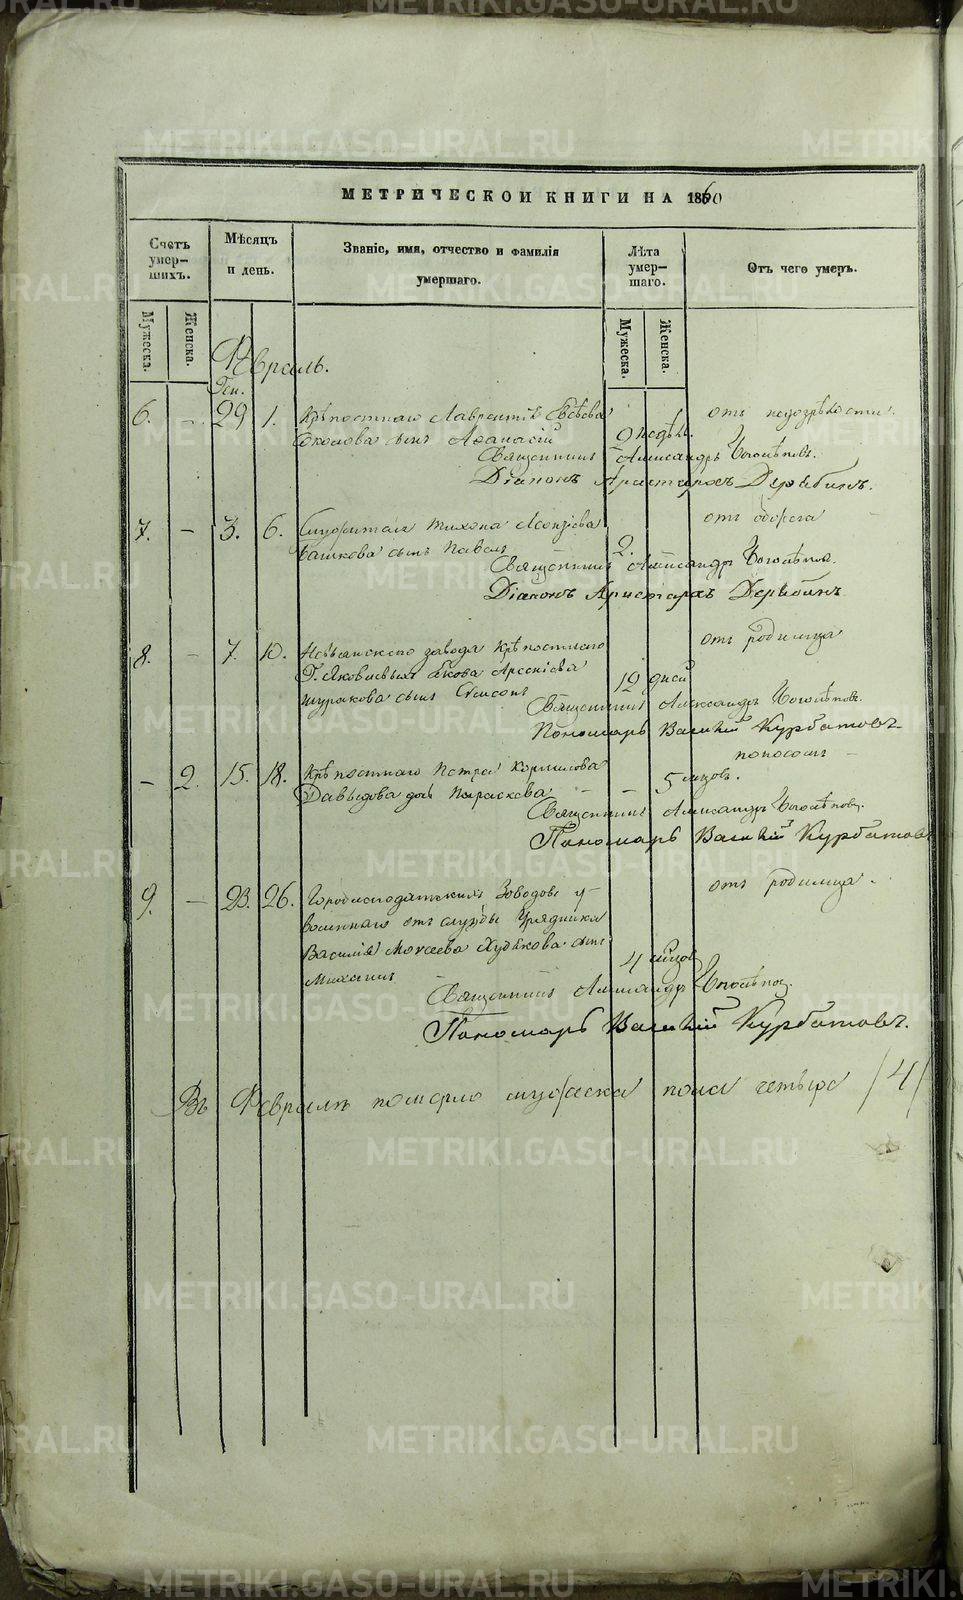 МЕТРИЧЕСКОЙ КНИГИ НА 1860
Счетъ умер-шихъ.
Мѣсяцъ и день.
Званіе, имя, отчество и фамилія умершаго.
Лѣта умер-шаго.
Отъ чего умеръ.
Мужеска.
Женска.
Мужеска.
Женска.
Февраль.
Ген.
6. - 29 1. Крѣпостнаго Лаврентія Евсѣева
сынъ Аѳанасій
9 недѣл.
отъ недозрѣлости.
Священникъ Александръ Боголѣповъ.
Діаконъ Аристархъ Дерябинъ.
7. - 3. 6. Тихона Леонтіева
сынъ Павелъ
2.
Священникъ Александръ Боголѣповъ.
Діаконъ Аристархъ Дерябинъ
8. - 7. 10. Невьянскаго завода крѣпостнаго
Г. Яковлевыхъ Якова Арсеніева
сынъ Симеонъ
12 дней
отъ родимца
Священникъ Александръ Боголѣповъ.
Пономарь Василій Курбатовъ
- 2. 15. 18. Крѣпостнаго Петра Корнилова
Давыдова дочь Параскева - -
5 мѣсяцов.
поносомъ -
Священникъ Александръ Боголѣповъ.
Пономарь Василій Курбатовъ
9. - 23. 26. Гороблагодатскихъ Заводовъ у-
воленнаго отъ службы Урядника
Василія Моисеева Худякова сынъ
Михаилъ
4 мѣсяцов
отъ родимца.
Священникъ Александръ Боголѣповъ.
Пономарь Василій Курбатовъ.
Въ Февралѣ померло мужеска пола четыре /4/
METRIKI.GASO-URAL.RU